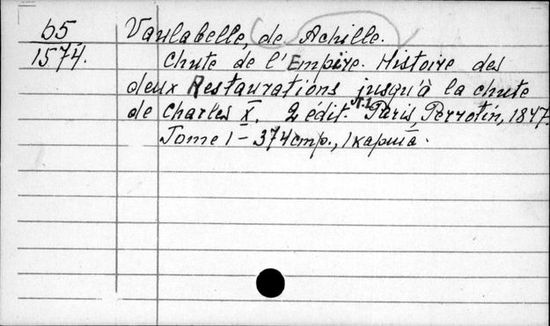 65 Vaulabelle, de Achille.
1574. Chute de l'Empire. Histoire des
deux Restaurations jusqu'à la chute
de Charles X. 2 édit. Paris, Perrotin, 1847.
Tome I - 374 стр., 1 карта.